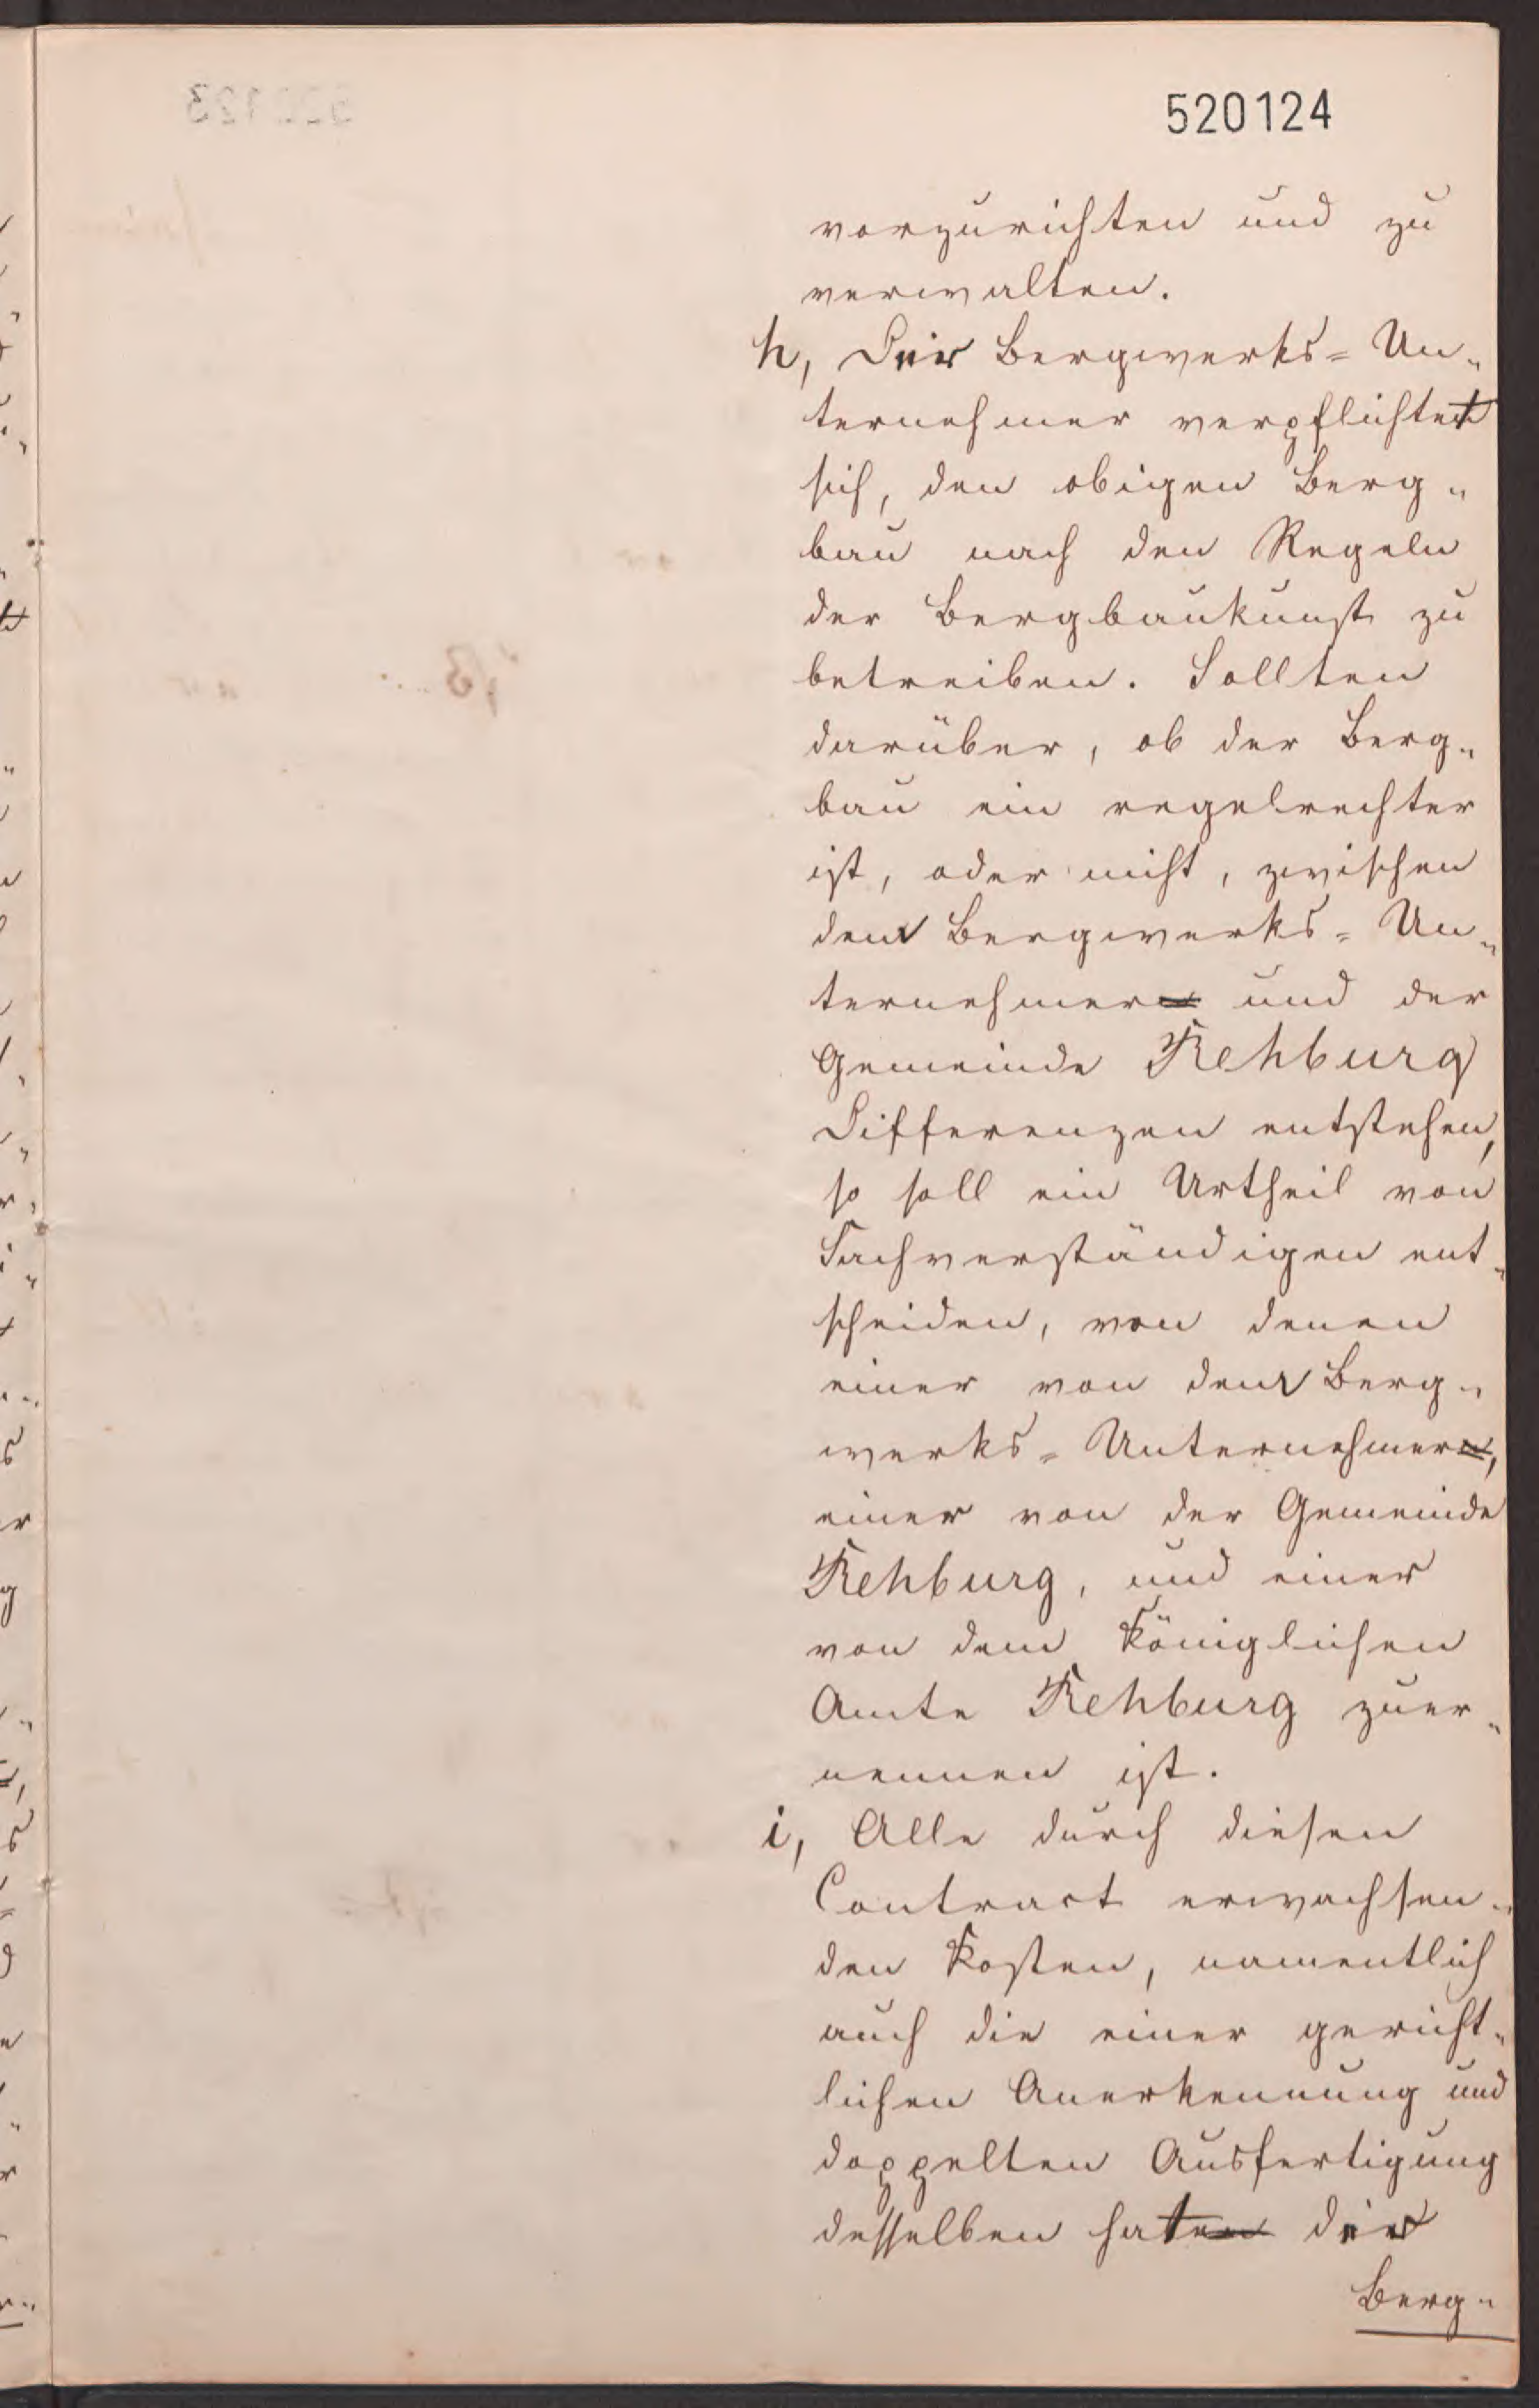 520124
vorzurichten und zu
verwalten.
h, Der Bergwerks= Un-
ternehmer verpflichtet
sich, den obigen Berg-
bau nach den Regeln
der Bergbaukunst zu
betreiben. Sollten
darüber, ob der Berg-
bau ein regelrechter
ist, oder nicht, zwischen
dem Bergwerks= Un-
ternehmer und der
Gemeinde Rehburg
Differenzen entstehen,
so soll ein Urtheil von
Sachverständigen ent-
scheiden, von denen
einer von dem Berg-
werks= Unternehmer,
einer von der Gemeinde
Rehburg, und einer
von dem Königlichen
Amte Rehburg zuer-
nennen ist.
i, Alle durch diesen
Contract erwachsen-
den Kosten, namentlich
auch die einer gericht-
lichen Anerkennung und
doppelten Ausfertigung
desselben hat der
Berg-